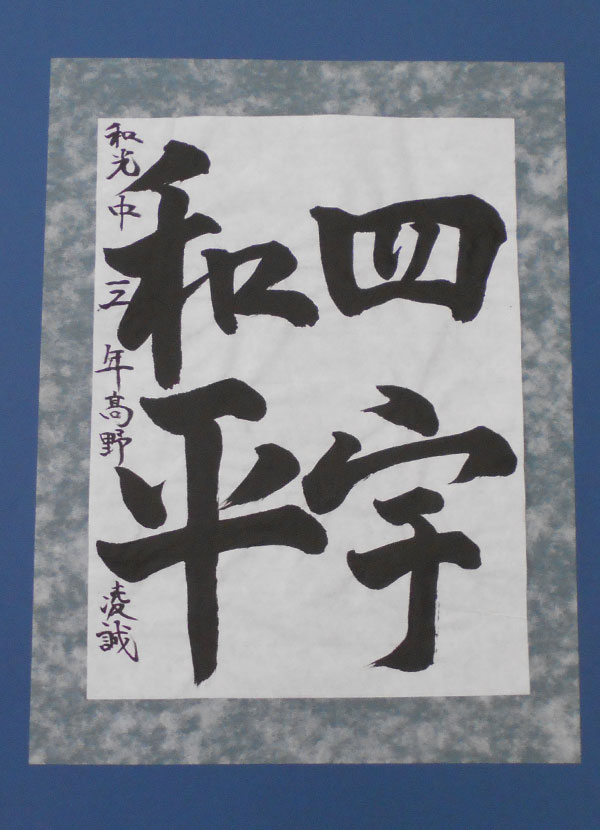 四宇
和平
和光中三年高野凌誠